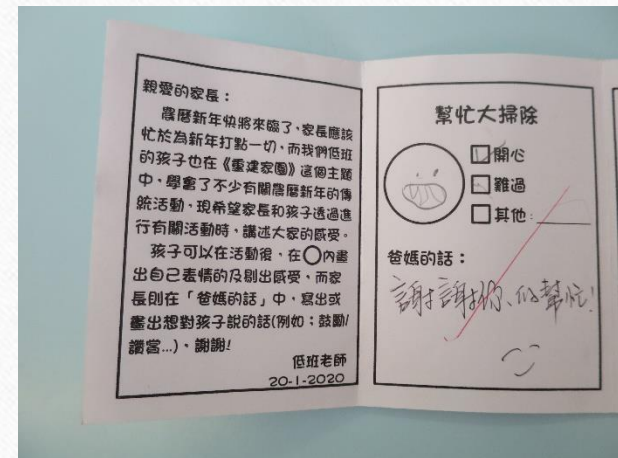 親愛的家長：
農曆新年快將來臨了，家長應該
忙於為新年打點一切，而我們低班
的孩子也在《重建家園》這個主題
中，學會了不少有關農曆新年的傳
統活動，現希望家長和孩子透過進
行有關活動時，講述大家的感受。
孩子可以在活動後，在○內畫
出自己表情的及剔出感受，而家
長則在「爸媽的話」中，寫出或
畫出想對孩子說的話(例如：鼓勵/
讚賞...)，謝謝!
低班老師
20-1-2020
幫忙大掃除
開心
難過
其他：
爸媽的話：
謝謝你的幫忙!